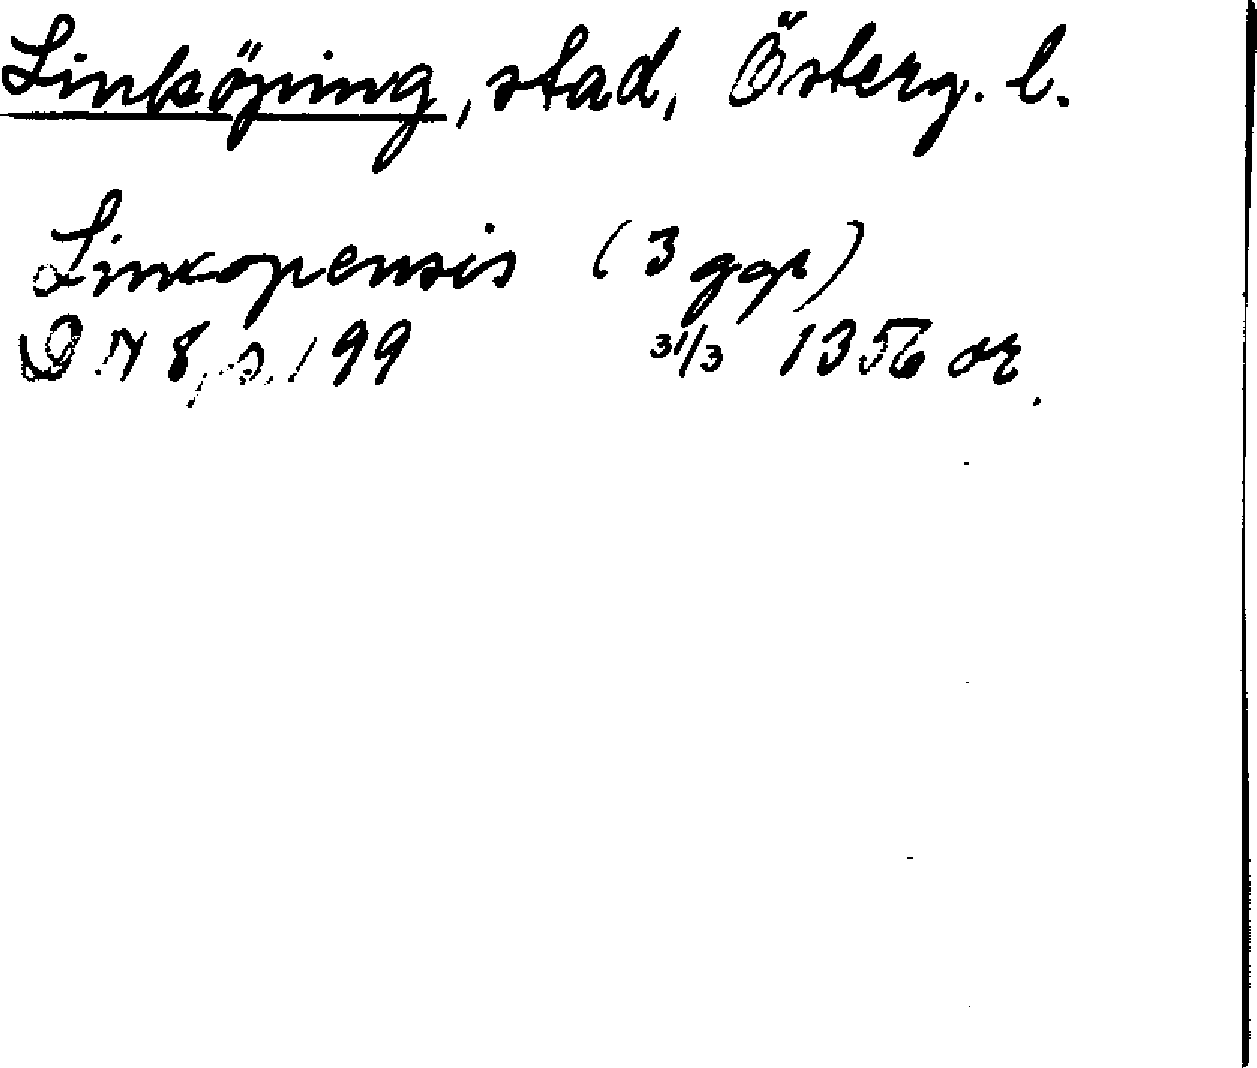 Linköping, stad, Österg. l.
Lincopensis (3 ggr)
DN 8, s. 199 31/3 1356 or.